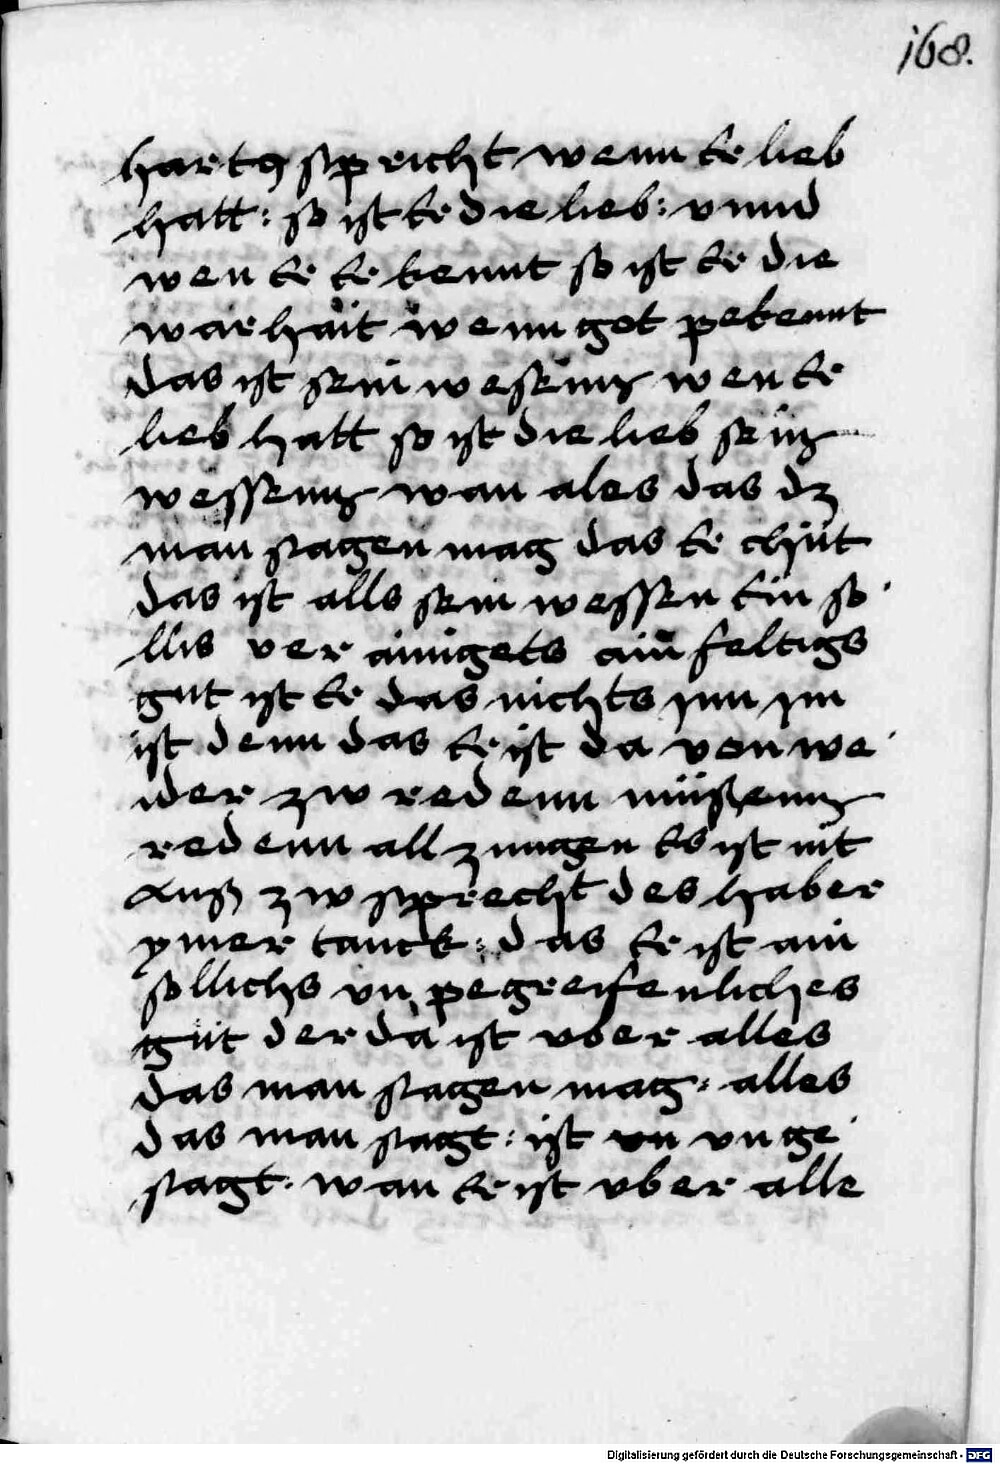 168.
hartꝰ spricht wenn er lieb
hatt: so ist er die lieb: vnnd
wen er erkennt so ist er die
warhäit wenn got pekennt
das ist sein wesenn wen er
lieb hatt so ist die lieb sein
wessenn wan ales das dz
man sagen mag das er thüt
das ist alls sein wessen Ein so
llis ver ainigets ainfeltigs
gut ist er das nichts ynn ym
ist denn das er ist da von we
ider zw redenn müssenn
redenn all zungen Es ist nit
auß zw sprecht des haber
ymer tanck: das er ist ain
sollichs vn pegreifenliches
güt der da ist vber alles
das man sagen mag: alles
das man sagt: ist vn vnge
sagt. wan er ist vber alle
Digitalisierung gefördert durch die Deutsche Forschungsgemeinschaft - DFG